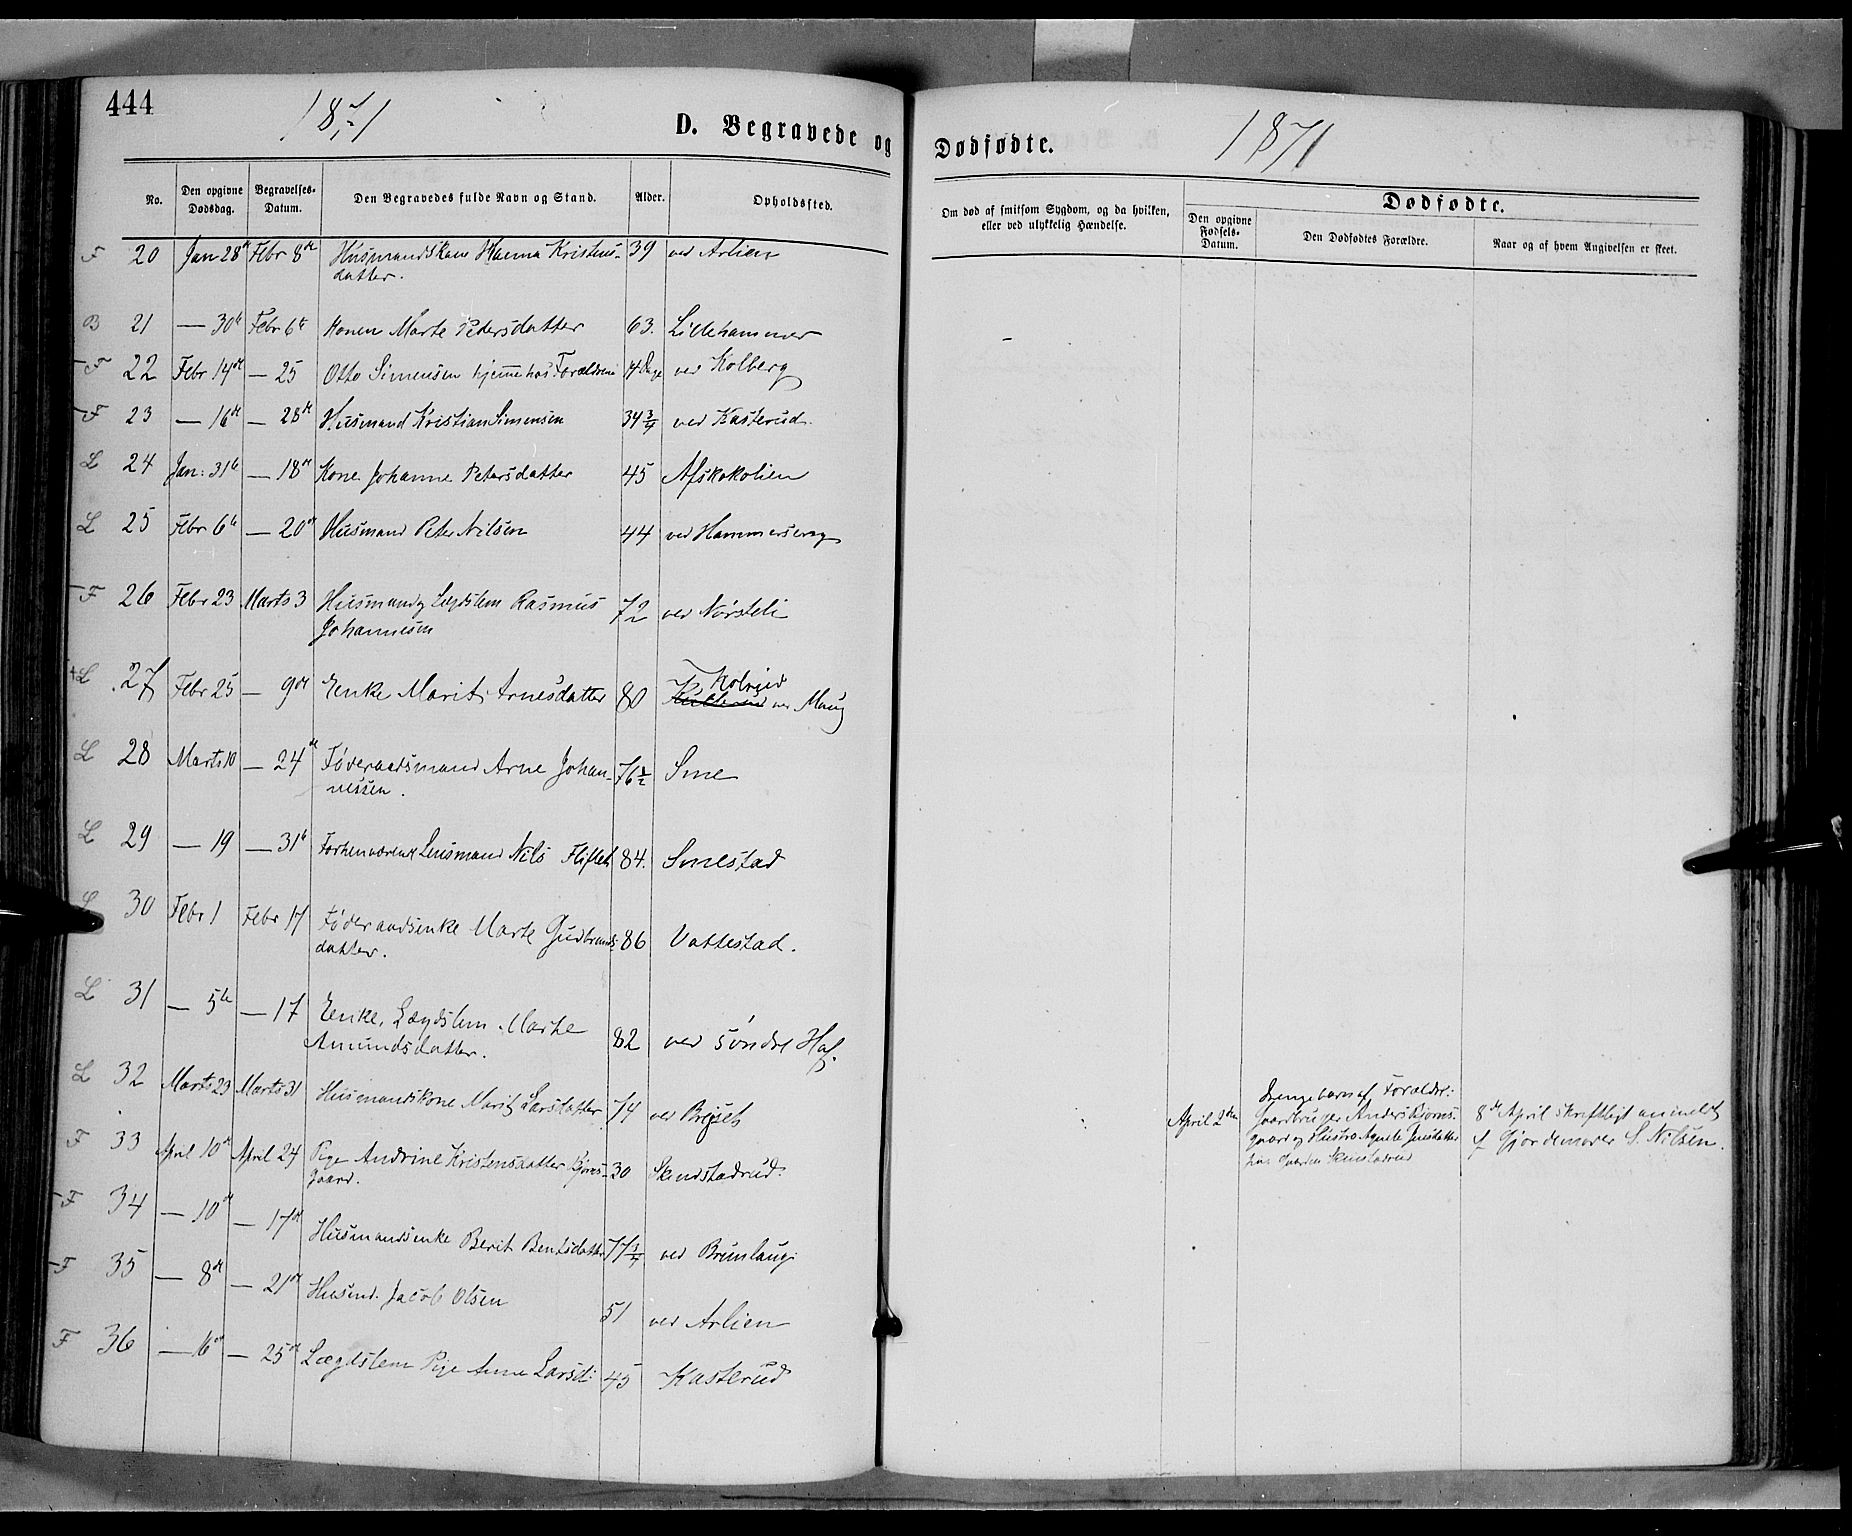 444
1871
D. Begravede og
No.
Den opgivne Dødsdag.
Begravelses-Datum.
Den Begravedes fulde Navn og Stand.
Alder.
Opholdssted.
F 20 Jan 28de Febr 8de Husmandskone Hanna Kristens- 39 ved Arlien
datter.
B 21 — 30te Febr 6te Konen Marte Pedersdatter 63. Lillehammer
F 22 Febr 14de — 25 Otto Simensen hjemme hos Forældrene 14 Dage ved Kolberg
F 23 — 16de — 28de Husmand Kristian Simensen 34 3/4 ved Kasterud
L 24 Jan: 31te — 18de Kone Johanne Petersdatter 45 Afskokolien
L 25 Febr 6te — 20de Husmand Peter Nilsen 44 ved Hammerseng
F 26 Febr 23 Marts 3 Husmand, Lægdslem Rasmus 72 ved Nørsteli
Johannesen
L 27 Febr 25 — 9de Enke Marit Arnesdatter 80 ved Maug
L 28 Marts 10 — 24de Føderaadsmand Arne Johan- 76 1/2 Sme
nessen.
L 29 — 19 — 31te Forhenværend Lensmand Nils Fliflet 84. Smestad
L 30 Febr 1 Febr 17 Føderaadsenke Marte Gudbrands- 86 Vattestad.
datter.
L 31 — 5te — 17 Enke, Lægdslem Marte 82 ved søndre Hof.
Amundsdatter.
L 32 Marts 23 Marts 31 Husmandskone Marit Larsdatter 74 ved Brøset
F 33 April 10de April 24 Pige Andrine Kristensdatter Bjørns- 30 Skenstadrud
gaard.
F 34 — 10de — 17de Husmandsenke Berit Bentsdatter 77 1/4 ved Brunlaug
F 35 — 8de — 21de Husmd. Jacob Olsen 51 ved Arlien
F 36 — 16de — 25de Lægdslem Pige Anne Larsd: 45 Kasterud
Dødfødte.
1871
Om død af smitsom Sygdom, og da hvilken,
eller ved ulykkelig Hændelse.
Dødfødte.
Den opgivne Fødsels-Datum.
Den Dødfødtes Forældre.
Naar og af hvem Angivelsen er skeet.
April 2den
Drengebarn af Forældre:
Gaardbruger Anders Bjørns-
gaard og Hustru Agnete Jensdatter
paa Gaarden Skenstadrud
8de April skriftligt anmeldt
af Gjordemoder S. Nilsen.